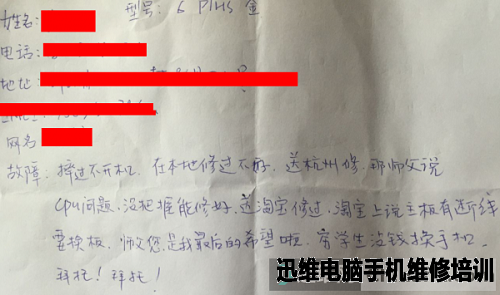 姓名: 型号: 6 Plus 金
电话:
地址:
网名
故障: 摔过不开机. 在本地修过不好, 送杭州修. 那师父说
CPU问题, 没把握能修好, 送淘宝修过, 淘宝上说主板有断线
要换板. 师父您是我最后的希望啦. 穷学生没钱换手机.
拜托! 拜托!
迅维电脑手机维修培训